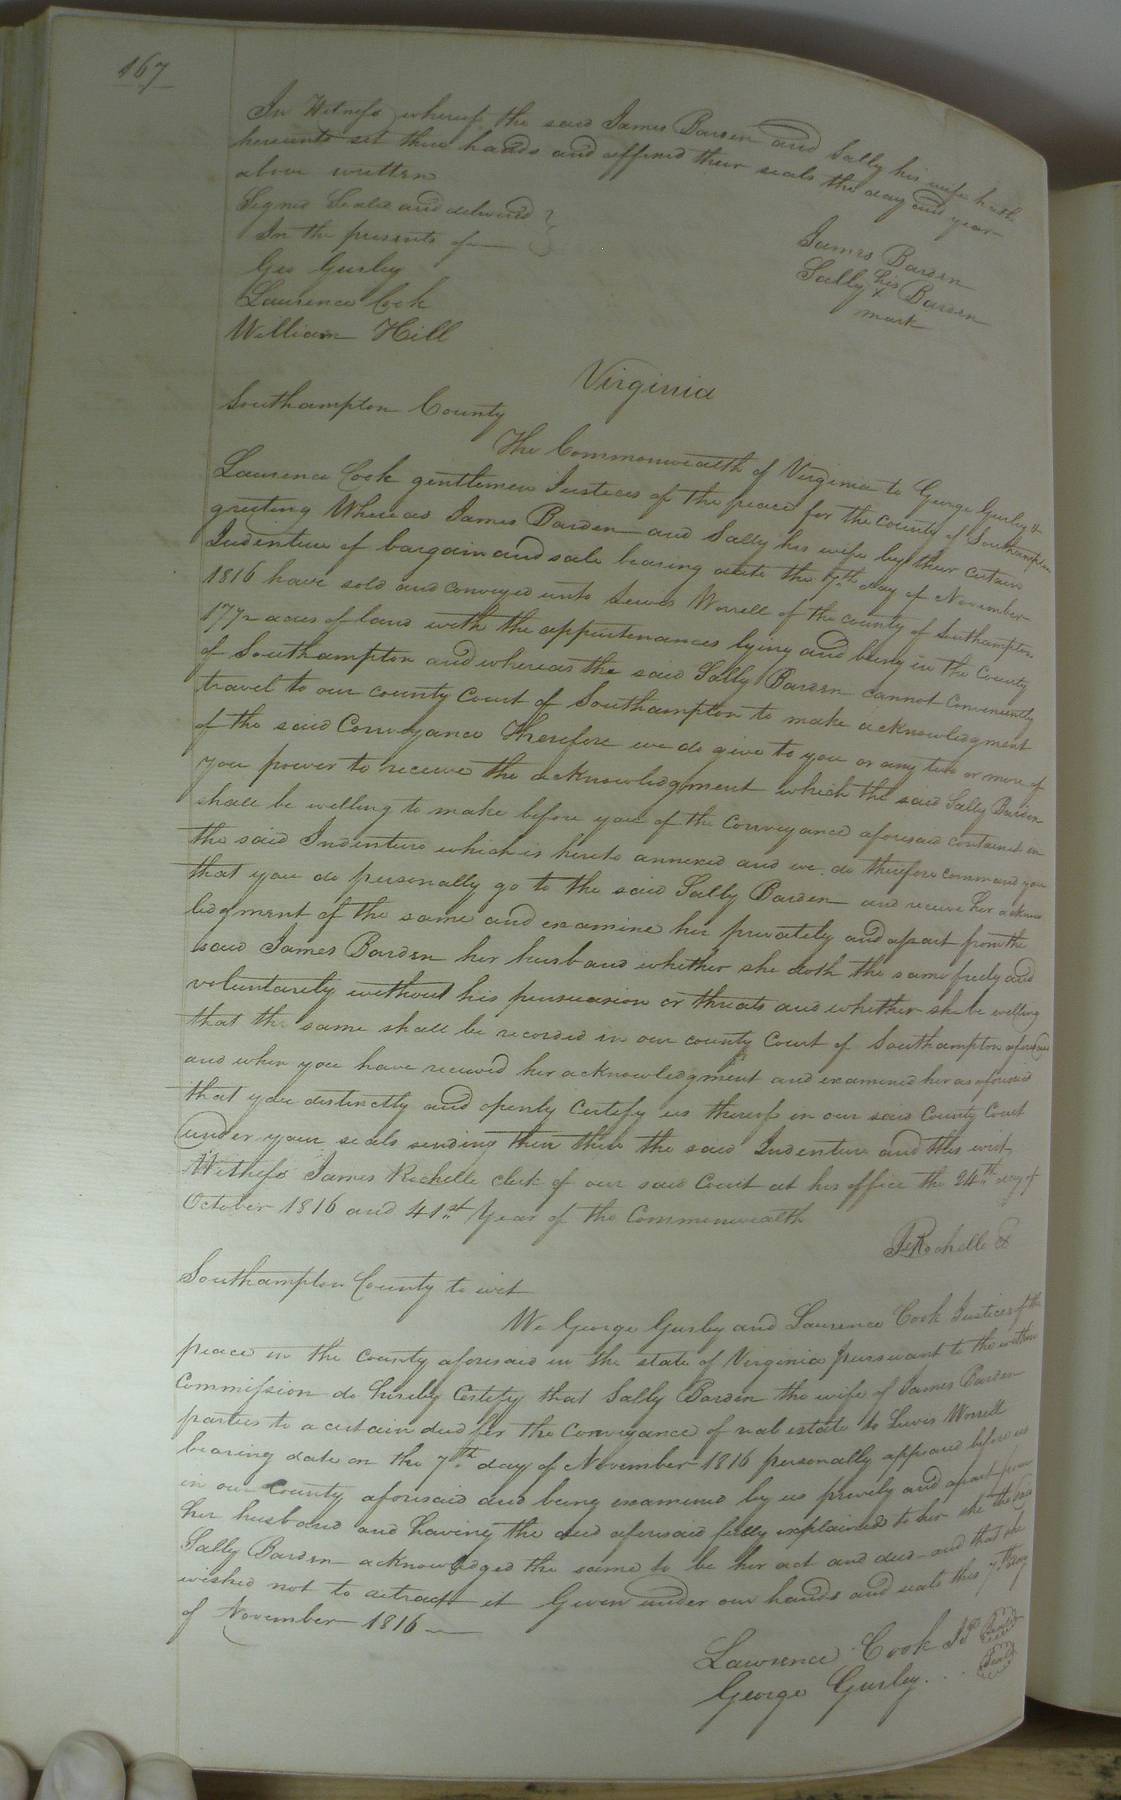 167
In Witness whereof the said James Barden and Sally his wife hath
hereunto set their hands and affixed their seals the day and year
above written
Signed Sealed and delivered
In the presents of
Geo Gurley
Laurence Cook
William Hill
James Barden
his
Sally x Barden
mark
Virginia
Southampton County
The Commonwealth of Virginia to George Gurley &
Laurence Cook gentlemen Justices of the peace for the county of Southampton
greeting Whereas James Barden and Sally his wife by their certain
Indenture of bargain and sale bearing date the 7th day of November
1816 have sold and conveyed unto Lewis Worrell of the county of Southampton
177½ acres of land with the appurtenances lying and being in the County
of Southampton and whereas the said Sally Barden cannot conveniently
travel to our county Court of Southampton to make acknowledgment
of the said Conveyance Therefore we do give to you or any two or more of
you power to receive the acknowledgment which the said Sally Barden
shall be willing to make before you of the Conveyance aforesaid contained in
the said Indenture which is hereto annexed and we do therefore command you
that you do personally go to the said Sally Barden and receive her acknow
ledgment of the same and examine her privately and apart from the
said James Barden her husband whether she doth the same freely and
voluntarily without his persuasion or threats and whether she be willing
that the same shall be recorded in our county Court of Southampton aforesaid
and when you have received her acknowledgment and examined her as aforesaid
that you distinctly and openly Certify us thereof in our said County Court
under your seals sending then there the said Indenture and this writ
Witness James Rochelle clerk of our said Court at his office the 24th day of
October 1816 and 41st Year of the Commonwealth
Js Rochelle
Southampton County to wit
We George Gurley and Laurence Cook Justices of the
peace in the county aforesaid in the state of Virginia pursuant to the within
Commission do hereby Certify that Sally Barden the wife of James Barden
parties to a certain deed for the Conveyance of real estate to Lewis Worrell
bearing date on the 7th day of November 1816 personally appeard before us
in our County aforesaid and being examined by us privily and apart from
her husband and having the deed aforesaid fully explained to her she the said
Sally Barden acknowledged the same to be her act and deed and that she
wished not to retract it Given under our hands and seals this 7th day
of November 1816
Lawrence Cook JP Seal
George Gurley . . . Seal